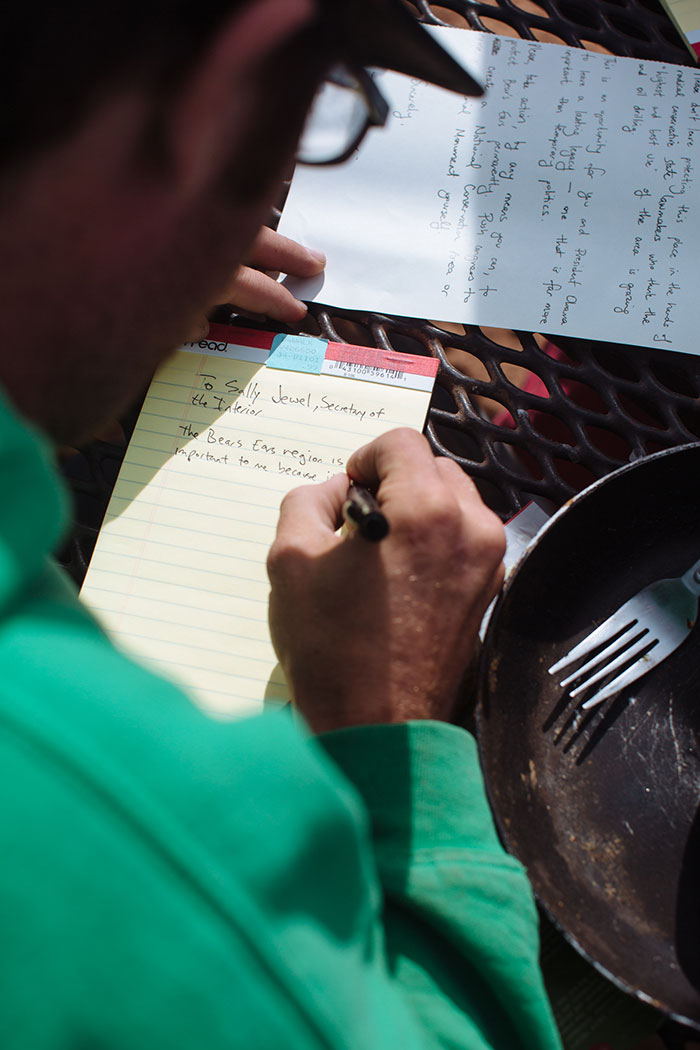 don't leave protecting this place in the hands of
radical conservative state lawmakers who think the
"highest and best use" of the area is grazing
and oil drilling.
This is an opportunity for you and President Obama
to leave a lasting legacy — one that is far more
important than temporary politics.
Please, take action, by any means you can, to
protect Bears Ears permanently. Push congress to
create a National Conservation Area or
Monument yourself.
Sincerely,
read.
To Sally Jewel, Secretary of
the Interior
The Bears Ears region is
important to me because